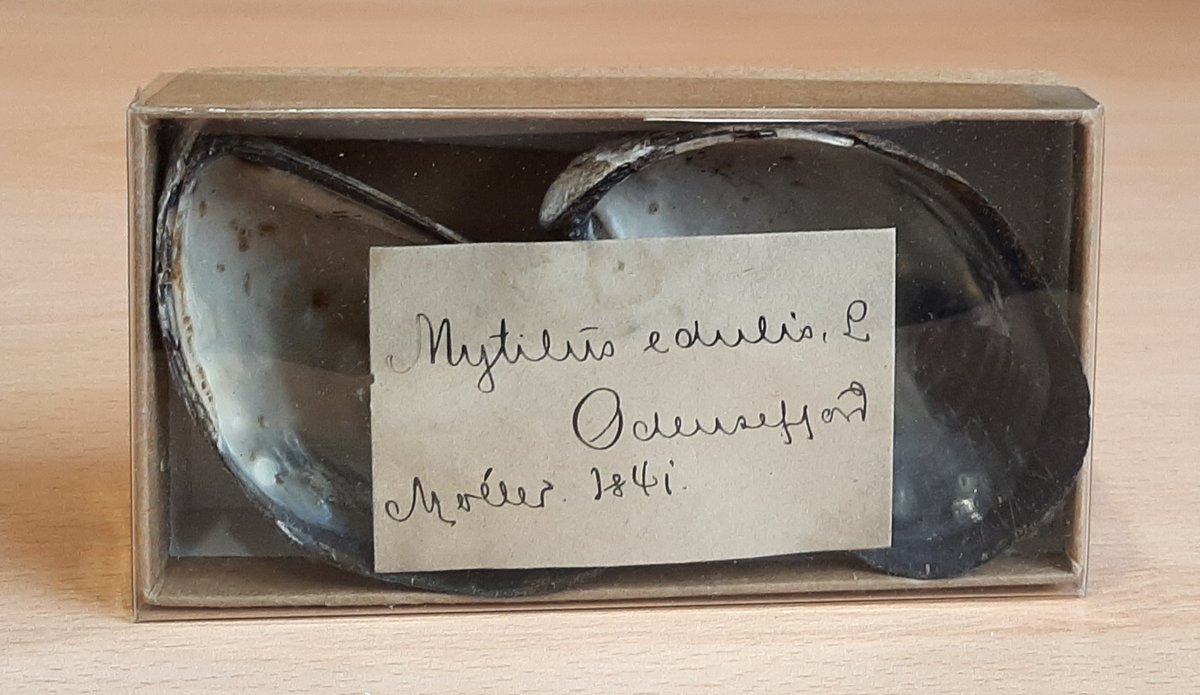 Mytilus edulis, L
Odensefjord
Møller. 1841.